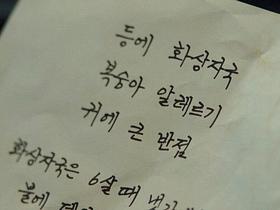 등에 화상자국
복숭아 알레르기
귀에 큰 반점
화상자국은 6살때
불에